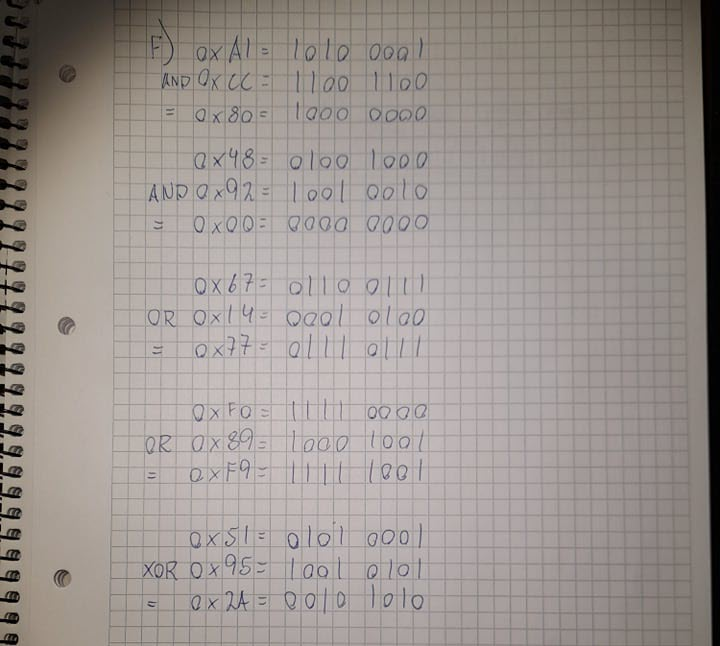 F) 0xA1 = 1010 0001
AND 0xCC = 1100 1100
= 0x80 = 1000 0000
0x48 = 0100 1000
AND 0x92 = 1001 0010
= 0x00 = 0000 0000
0x67 = 0110 0111
OR 0x14 = 0001 0100
= 0x77 = 0111 0111
0xF0 = 1111 0000
OR 0x89 = 1000 1001
= 0xF9 = 1111 1001
0x51 = 0101 0001
XOR 0x95 = 1001 0101
= 0x2A = 0010 1010